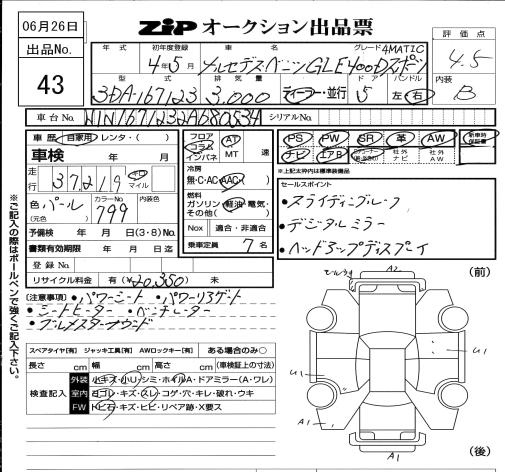 06月26日
ZIP オークション出品票
出品No.
43
年式 初年度登録 車名 グレード 評価点
4年5月 メルセデス・ベンツGLE400Dスポーツ 4MATIC 4.5
型式 排気量 ドア ハンドル 内装
3DA-167123 3,000 ディーラー・並行 5 左・右 B
車台No. W1N1671232A680534 シリアルNo.
車歴 自家用・レンタ・( )
車検 年 月
走行 37,219 キロ マイル
色 パール (元色) カラーNo. 799 内装色
予備検 年 月 日(3・8)No.
書類有効期限 年 月 日迄
登録No.
リサイクル料金 有(¥20,350) 未
フロア コラム インパネ AT MT 速
冷房 無・C・AC・AAC
燃料 ガソリン・軽油・電気・その他( )
Nox 適合・非適合
乗車定員 7名
PS PW SR 革 AW 新車時保証書
ナビ エアB 社外ナビ 社外AW
※上記太枠内は標準装備品
セールスポイント
・スライディングルーフ
・デジタルミラー
・ヘッドアップディスプレイ
[注意事項]・パワーシート ・パワーリアゲート
・シートヒーター ・ベンチレーター
・ブルメスターサウンド
スペアタイヤ[有] ジャッキ工具[有] AWロックキー[有] ある場合のみ○
長さ cm 幅 cm 高さ cm (車検証上の寸法)
検査記入
外装 小キズ・小リシミ・ホイルA・ドアミラー(A・ワレ)
室内 ヨゴレ・キズ・スレ・コゲ・穴・キレ・破れ・ウキ
FW トビ石・キズ・ヒビ・リペア跡・X要ス
※ご記入の際はボールペンで強くご記入下さい。
(前)
A2
U1
U1
A1
A1
(後)